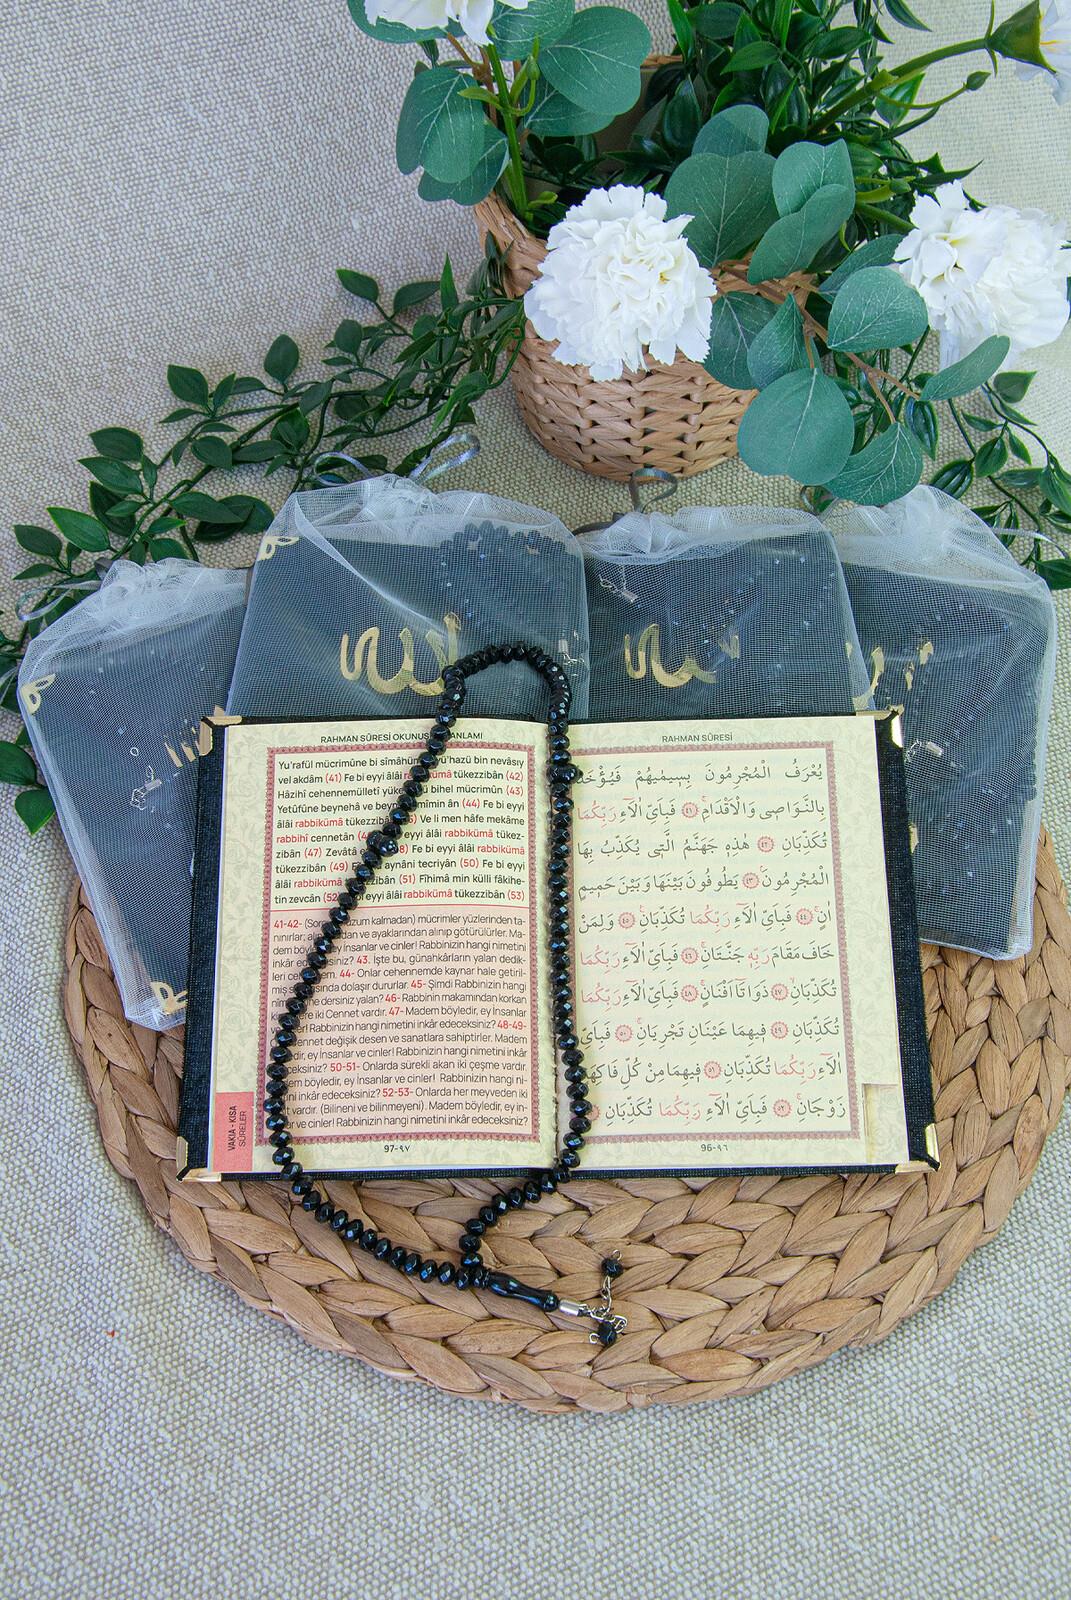 RAHMAN SÛRESİ OKUNUŞ ANLAMI
Yu'rafül mücrimûne bi sîmâhüm yü'hazü bin nevâsıy
vel akdâm (41) Fe bi eyyi âlâi tükezzibân (42)
Hâzihî cehennemülletî bihel mücrimûn (43)
Yetûfûne beynehâ ve beyne ân (44) Fe bi eyyi
âlâi rabbikümâ tükezzibân Ve li men hâfe mekâme
rabbihî cennetân eyyi âlâi rabbikümâ tükez-
zibân (47) Zevâtâ Fe bi eyyi âlâi rabbikümâ
tükezzibân (49) aynâni tecriyân (50) Fe bi eyyi
âlâi rabbikümâ (51) Fîhimâ min külli fâkihe-
tin zevcân eyyi âlâi rabbikümâ tükezzibân (53)
41-42- kalmadan) mücrimler yüzlerinden ta-
nınırlar; ve ayaklarından alınıp götürülürler. Ma-
dem ey İnsanlar ve cinler! Rabbinizin hangi nimetini
inkâr 43. İşte bu, günahkârların yalan dedik-
leri 44- Onlar cehennemde kaynar hale getiril-
miş dolaşır dururlar. 45- Şimdi Rabbinizin hangi
dersiniz yalan? 46- Rabbin makamından korkan
iki Cennet vardır. 47- Madem böyledir, ey İnsanlar
Rabbinizin hangi nimetini inkâr edeceksiniz? 48-49-
değişik desen ve sanatlara sahiptirler. Madem
ey İnsanlar ve cinler! Rabbinizin hangi nimetini inkâr
50-51- Onlarda sürekli akan iki çeşme vardır.
böyledir, ey İnsanlar ve cinler! Rabbinizin hangi ni-
inkâr edeceksiniz? 52-53- Onlarda her meyveden iki
vardır. (Bilineni ve bilinmeyeni). Madem böyledir, ey in-
ve cinler! Rabbinizin hangi nimetini inkâr edeceksiniz?
VAKIA - KISA
SÛRELER
97-٩٧
RAHMAN SÛRESİ
يُعْرَفُ الْمُجْرِمُونَ بِسِيمٰيهُمْ فَيُؤْخَذُ
بِالنَّوَاصِى وَالْاَقْدَامِ ﴿٤١﴾ فَبِاَىِّ اٰلَٓاءِ رَبِّكُمَا
تُكَذِّبَانِ ﴿٤٢﴾ هٰذِهِ جَهَنَّمُ الَّتِى يُكَذِّبُ بِهَا
الْمُجْرِمُونَ ﴿٤٣﴾ يَطُوفُونَ بَيْنَهَا وَبَيْنَ حَمِيمٍ
اٰنٍ ﴿٤٤﴾ فَبِاَىِّ اٰلَٓاءِ رَبِّكُمَا تُكَذِّبَانِ ﴿٤٥﴾ وَلِمَنْ
خَافَ مَقَامَ رَبِّهِ جَنَّتَانِ ﴿٤٦﴾ فَبِاَىِّ اٰلَٓاءِ رَبِّكُمَا
تُكَذِّبَانِ ﴿٤٧﴾ ذَوَاتَٓا اَفْنَانٍ ﴿٤٨﴾ فَبِاَىِّ اٰلَٓاءِ رَبِّكُمَا
تُكَذِّبَانِ ﴿٤٩﴾ فِيهِمَا عَيْنَانِ تَجْرِيَانِ ﴿٥٠﴾ فَبِاَىِّ
اٰلَٓاءِ رَبِّكُمَا تُكَذِّبَانِ ﴿٥١﴾ فِيهِمَا مِنْ كُلِّ فَاكِهَةٍ
زَوْجَانِ ﴿٥٢﴾ فَبِاَىِّ اٰلَٓاءِ رَبِّكُمَا تُكَذِّبَانِ
96-٩٦